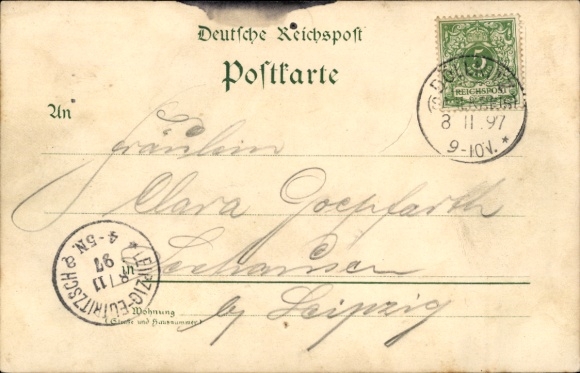 Deutsche Reichspost
Postkarte
5
REICHSPOST
8 11 97
9-10V. *
An
Fräulein
Clara Goepfarth
in Seehausen
b/ Leipzig
Wohnung
(Straße und Hausnummer)
LEIPZIG-EUTRITZSCH
8/11
97
4-5N.